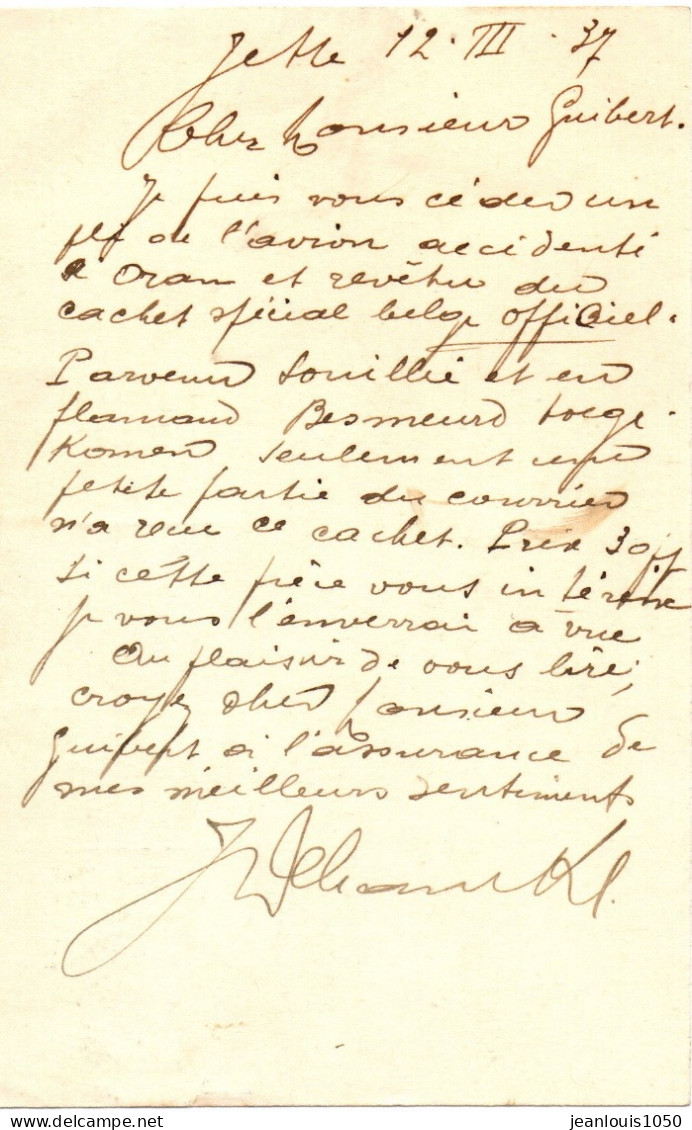 Jette 12.III.37
Cher Monsieur Guibert.
Je puis vous céder un
pli de l'avion accidenté
a Oran et revêtu du
cachet spécial belge officiel.
Parvenu souillé et en
flamand Besmeurd toege-
komen seulement une
petite partie du courrier
n'a reçu ce cachet. Prix 30
Si cette pièce vous intéresse
je vous l'enverrai à vue
Au plaisir de vous lire,
croyez cher Monsieur
Guibert à l'assurance de
mes meilleurs sentiments
jeanlouis1050